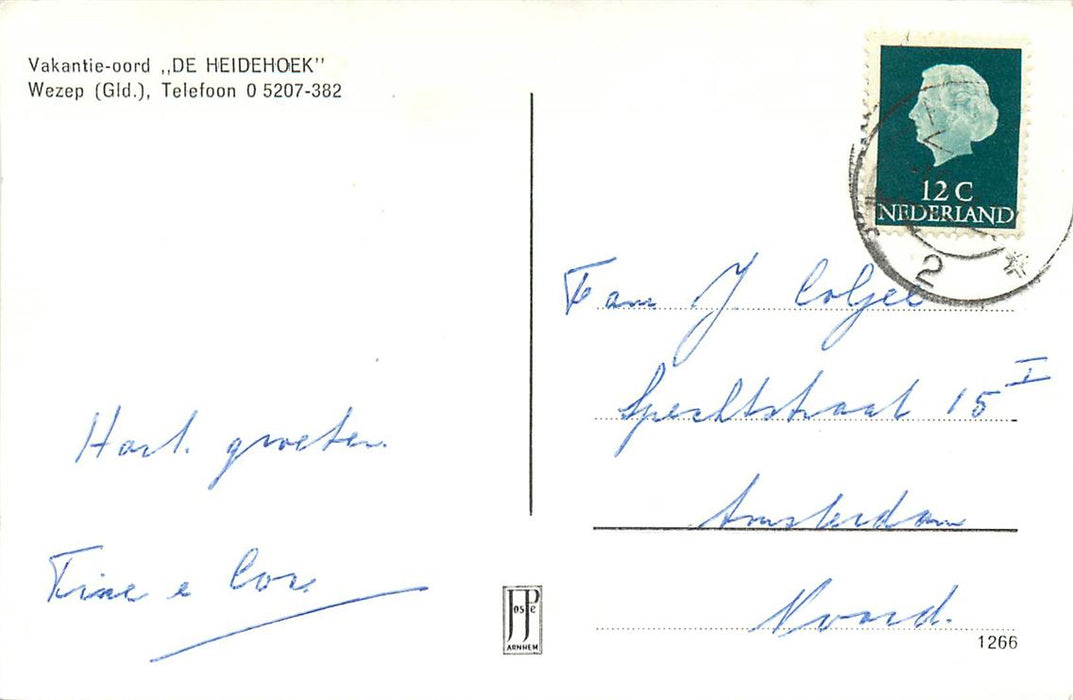 Vakantie-oord „DE HEIDEHOEK"
Wezep (Gld.), Telefoon 0 5207-382
Hart. groeten.
Tine e Cor.
12 C
NEDERLAND
2
Fam J
Spechtstraat 15 I
Amsterdam
Noord.
JosPe
ARNHEM
1266